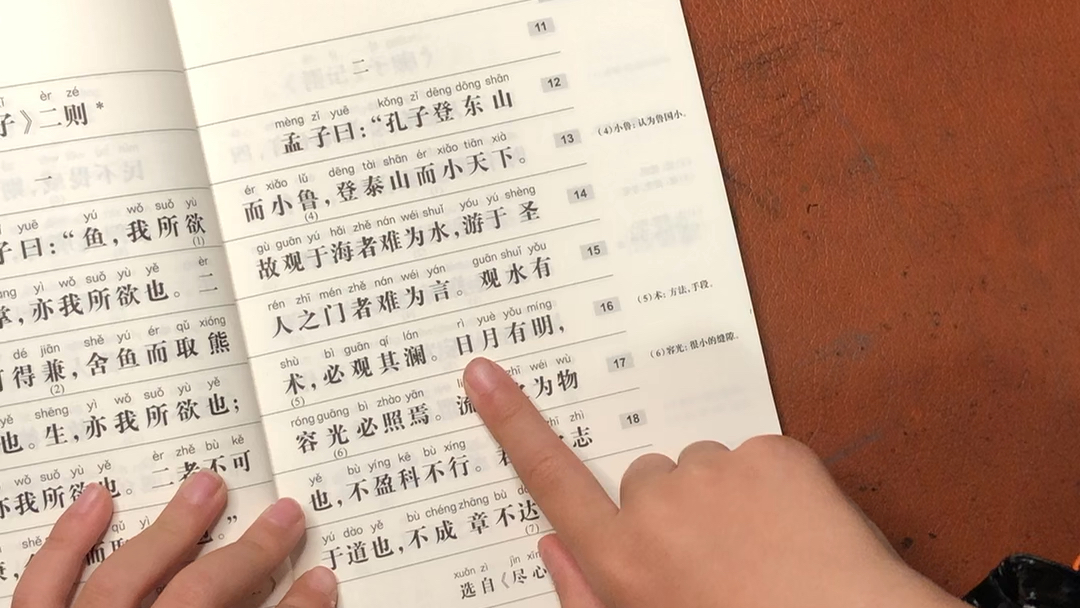 èr zé
子》二则*
一
yuē yú wǒ suǒ yù
子曰：“鱼，我所欲(1)
yì wǒ suǒ yù yě èr
掌，亦我所欲也。二
dé jiān shě yú ér qǔ xióng
得兼，(2)舍鱼而取熊
yě shēng yì wǒ suǒ yù yě
也。生，亦我所欲也；
wǒ suǒ yù yě èr zhě bù kě
亦我所欲也。二者不可
qǔ yì
也。”
11
二
12
mèng zǐ yuē kǒng zǐ dēng dōng shān
孟子曰：“孔子登东山
13
ér xiǎo lǔ dēng tài shān ér xiǎo tiān xià
而小鲁，(4)登泰山而小天下。
(4)小鲁：认为鲁国小。
14
gù guān yú hǎi zhě nán wéi shuǐ yóu yú shèng
故观于海者难为水，游于圣
15
rén zhī mén zhě nán wéi yán guān shuǐ yǒu
人之门者难为言。观水有
16
shù bì guān qí lán rì yuè yǒu míng
术，(5)必观其澜。日月有明，
(5)术：方法，手段。
17
róng guāng bì zhào yān zhī wéi wù
容光(6)必照焉。流为物
(6)容光：很小的缝隙。
18
yě bù yíng kē bù xíng zhī zhì
也，不盈科不行。志
yú dào yě bù chéng zhāng bù dá
于道也，不成章不达(7)
xuǎn zì jìn xīn
选自《尽心